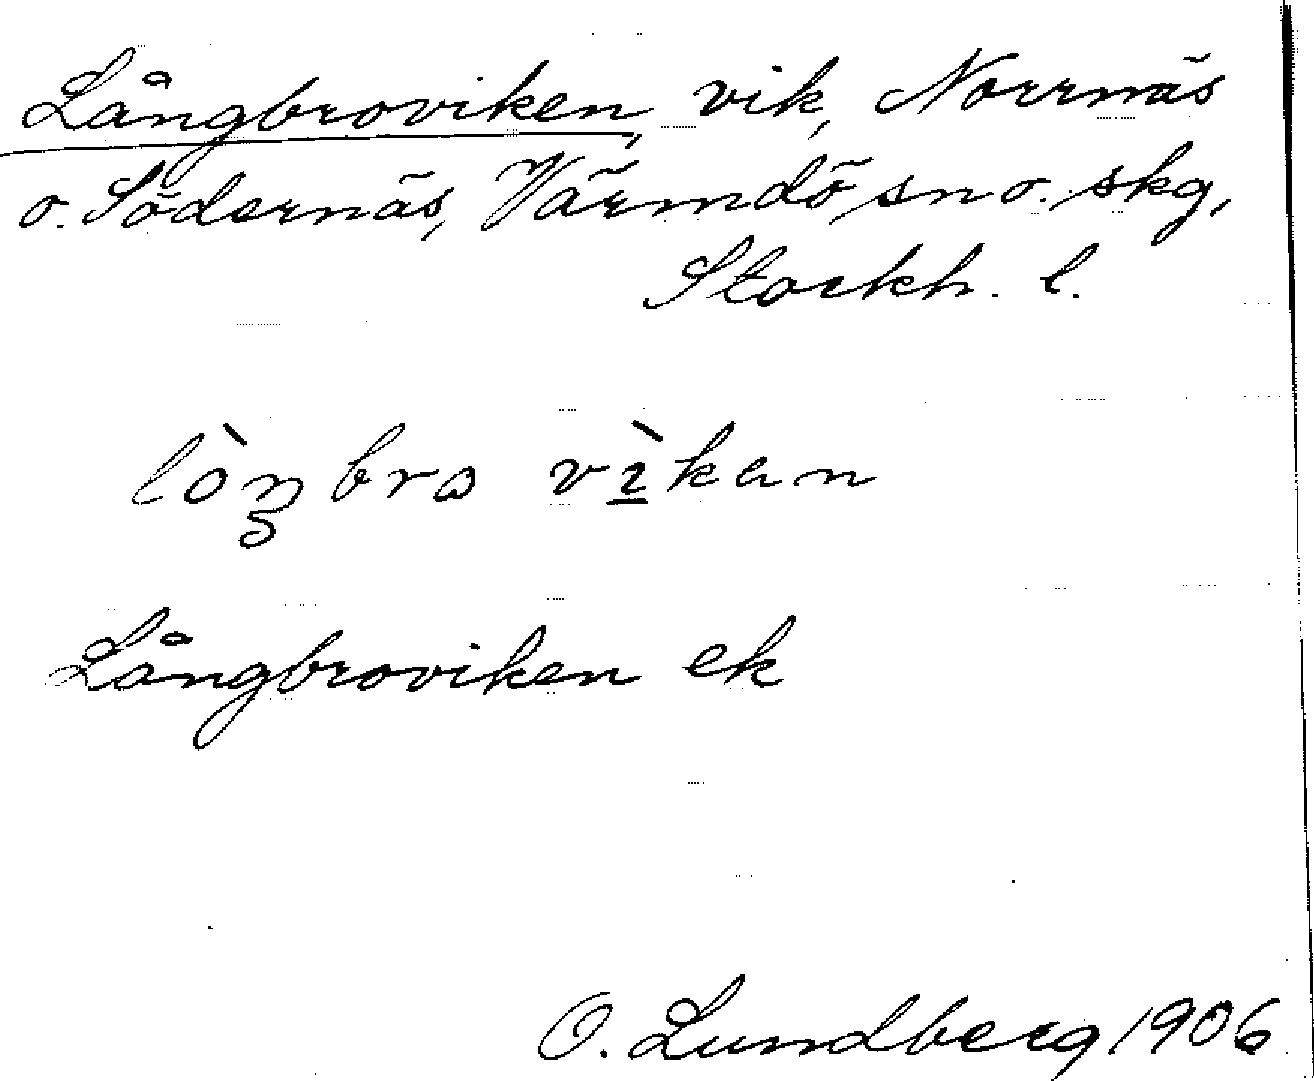 Långbroviken, vik, Norrnäs
o. Södernäs, Värmdö sn o. skg,
Stockh. l.
lòŋbrω vìkən
Långbroviken ek
O. Lundberg 1906